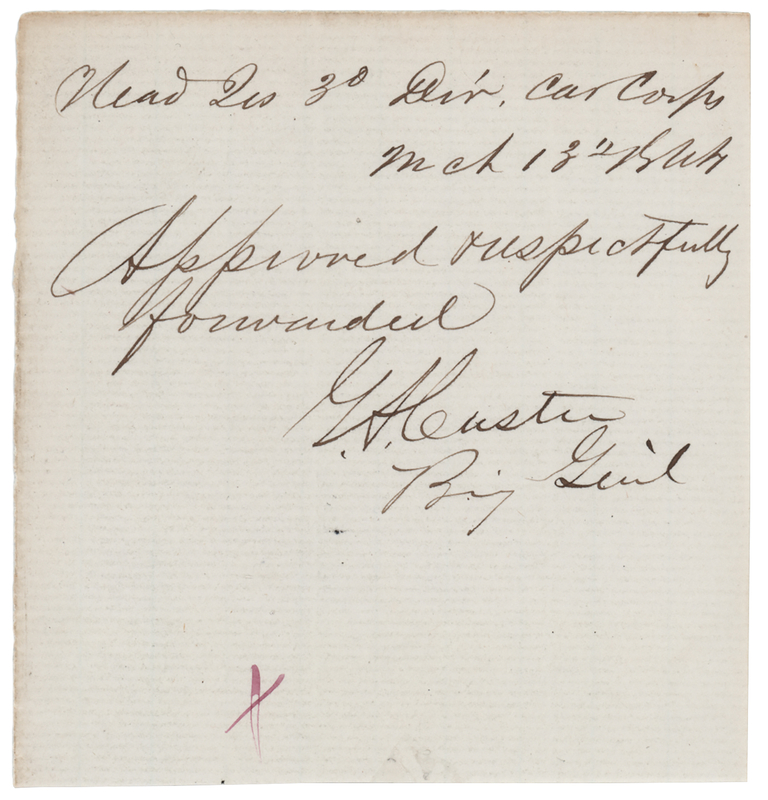 Head Qrs 3d Div. Cav Corps
Mch 13"
Approved & respectfully
forwarded
G. A. Custer
Brig Gen'l